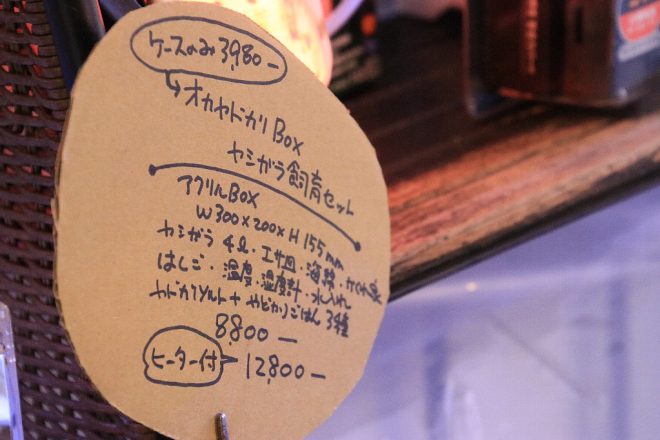 ケースのみ 3,980-
オカヤドカリBOX
ヤシガラ飼育セット
アクリルBOX
W300×200×H155mm
ヤシガラ 4ℓ・エサ皿・海綿・かくれ家
はしご・温度・湿度計・水入れ
ヤドカリソルト+やどかりごはん 3種
8,800-
ヒーター付 12,800-